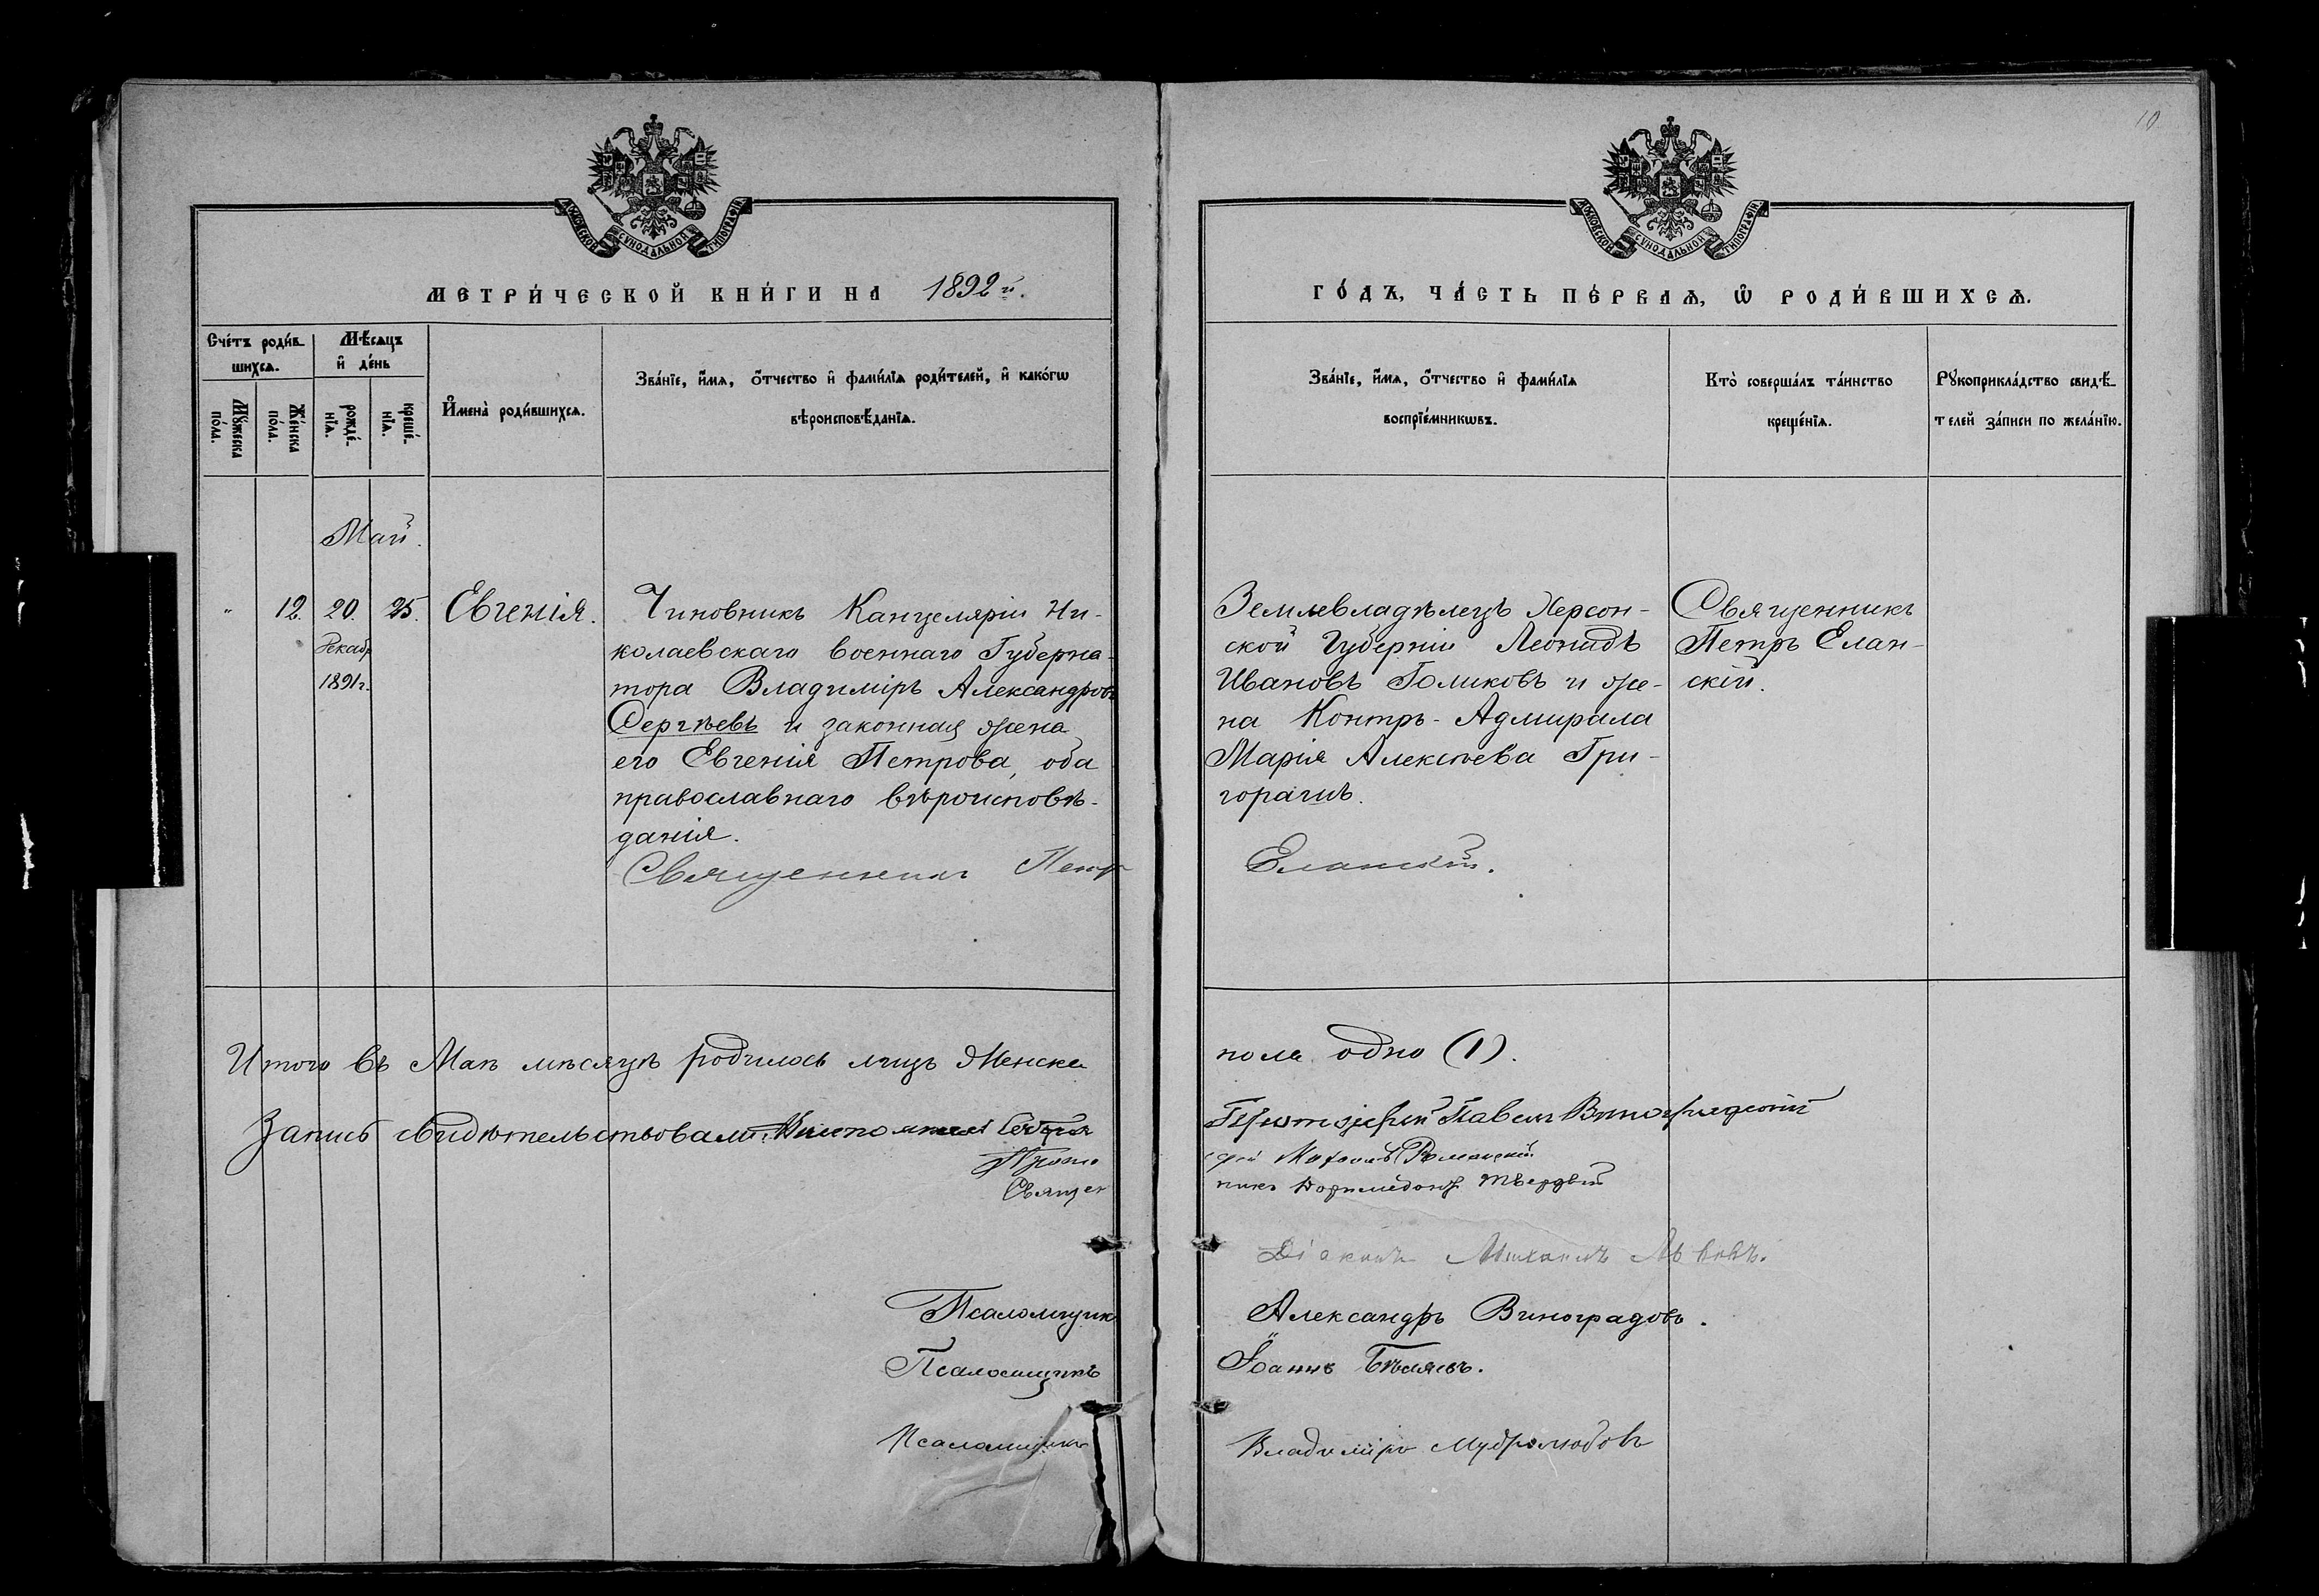 10
МОСКОВСКОЙ СѴНОДАЛЬНОЙ ТИПОГРАФІИ
МОСКОВСКОЙ СѴНОДАЛЬНОЙ ТИПОГРАФІИ
МЕТРИ́ЧЕСКОЙ КНИ́ГИ НА 1892й.
ГО́ДЪ, ЧА́СТЬ ПЕ́РВАѦ, Ѽ РОДИ́ВШИХСѦ.
Сче́тъ роди́в-
шихсѧ.
Мꙋ́жеска по́ла.
Же́нска по́ла.
Мѣ́сѧцъ
и҆ де́нь
рожде́-
нїѧ.
креще́-
нїѧ.
И҆мена̀ роди́вшихсѧ.
Зва́нїе, и҆́мѧ, ѻ҆́тчество и҆ фами́лїѧ роди́телей, и҆ како́гѡ
вѣроисповѣ́данїѧ.
Зва́нїе, и҆́мѧ, ѻ҆́тчество и҆ фами́лїѧ
воспрїе́мникѡвъ.
Кто̀ соверша́лъ та́инство
креще́нїѧ.
Рꙋкоприкла́дство свидѣ́-
телей за́писи по жела́нїю.
Май.
" 12. 20. 25. Евгенія.
Декабр
1891г.
Чиновникъ Канцеляріи Ни-
колаевскаго военнаго Губерна-
тора Владиміръ Александровъ
Сергѣевъ и законная жена
его Евгенія Петрова, оба
православнаго вѣроисповѣ-
данія.
Землевладѣлецъ Херсон-
ской Губерніи Леонидъ
Ивановъ Голиковъ и же-
на Контръ-Адмирала
Марія Алексѣева Гри-
горашъ.
Священникъ
Петръ Елан-
скій.
Священникъ Петръ Еланскій.
Итого въ Маѣ мѣсяцѣ родилось лицъ Женска пола одно (1).
Запись свидѣтельствовали: Протоіерей Павелъ Виноградскій
Протоіерей Романскій
Священникъ Доримедонтъ Твердый
Діаконъ Михаилъ Львовъ.
Псаломщик Александръ Виноградовъ.
Псаломщикъ Іоаннъ Бѣляевъ.
Псаломщикъ Владиміръ Мудролюбовъ